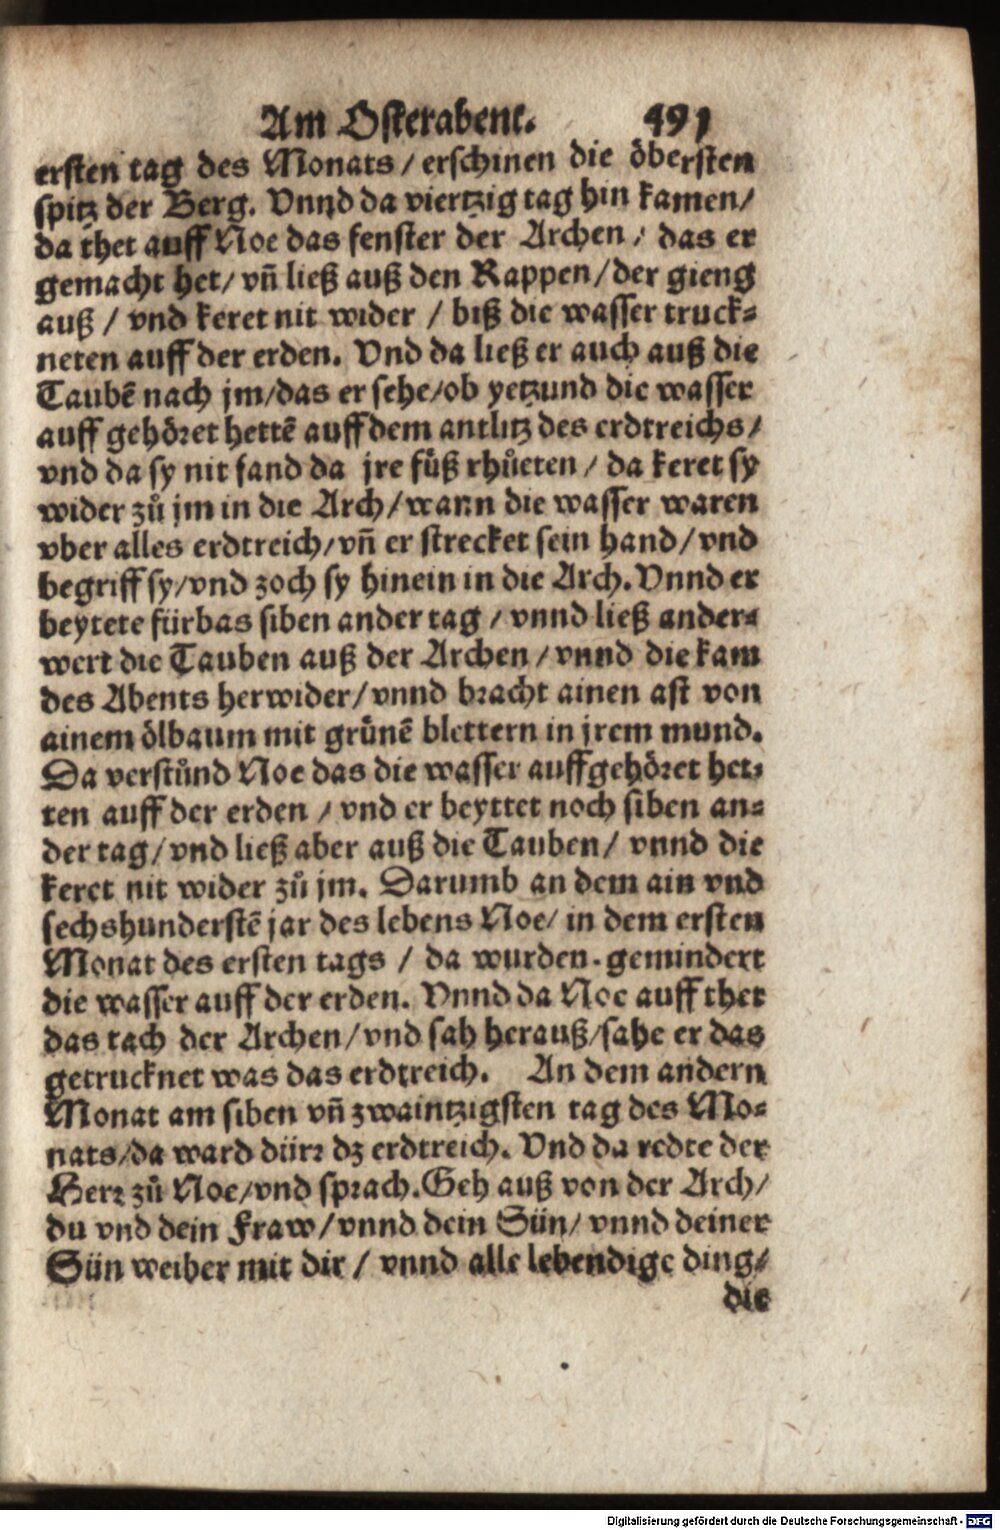 Am Osterabent. 491
ersten tag des Monats / erschinen die öbersten
spitz der Berg. Vnnd da viertzig tag hin kamen/
da thet auff Noe das fenster der Archen / das er
gemacht het/ vñ ließ auß den Rappen/der gieng
auß / vnd keret nit wider / biß die wasser truck-
neten auff der erden. Vnd da ließ er auch auß die
Taubē nach jm/das er sehe/ob yetzund die wasser
auff gehöret hettē auff dem antlitz des erdtreichs/
vnd da sy nit fand da jre füß rhůeten / da keret sy
wider zů jm in die Arch/wann die wasser waren
vber alles erdtreich/vñ er strecket sein hand/vnd
begriff sy/vnd zoch sy hinein in die Arch. Vnnd er
beytete fürbas siben ander tag / vnnd ließ ander-
wert die Tauben auß der Archen / vnnd die kam
des Abents herwider/vnnd bracht ainen ast von
ainem ölbaum mit grünē blettern in jrem mund.
Da verstůnd Noe das die wasser auffgehöret het-
ten auff der erden / vnd er beyttet noch siben an-
der tag/vnd ließ aber auß die Tauben/ vnnd die
keret nit wider zů jm. Darumb an dem ain vnd
sechshunderstē jar des lebens Noe/ in dem ersten
Monat des ersten tags / da wurden gemindert
die wasser auff der erden. Vnnd da Noe auff thet
das tach der Archen/vnd sah herauß/sahe er das
getrucknet was das erdtreich. An dem andern
Monat am siben vñ zwaintzigsten tag des Mo-
nats/da ward dürr dz erdtreich. Vnd da redte der
Herr zů Noe/vnd sprach. Geh auß von der Arch/
du vnd dein Fraw/vnnd dein Sün/ vnnd deiner
Sün weiber mit dir / vnnd alle lebendige ding/
die
Digitalisierung gefördert durch die Deutsche Forschungsgemeinschaft - DFG